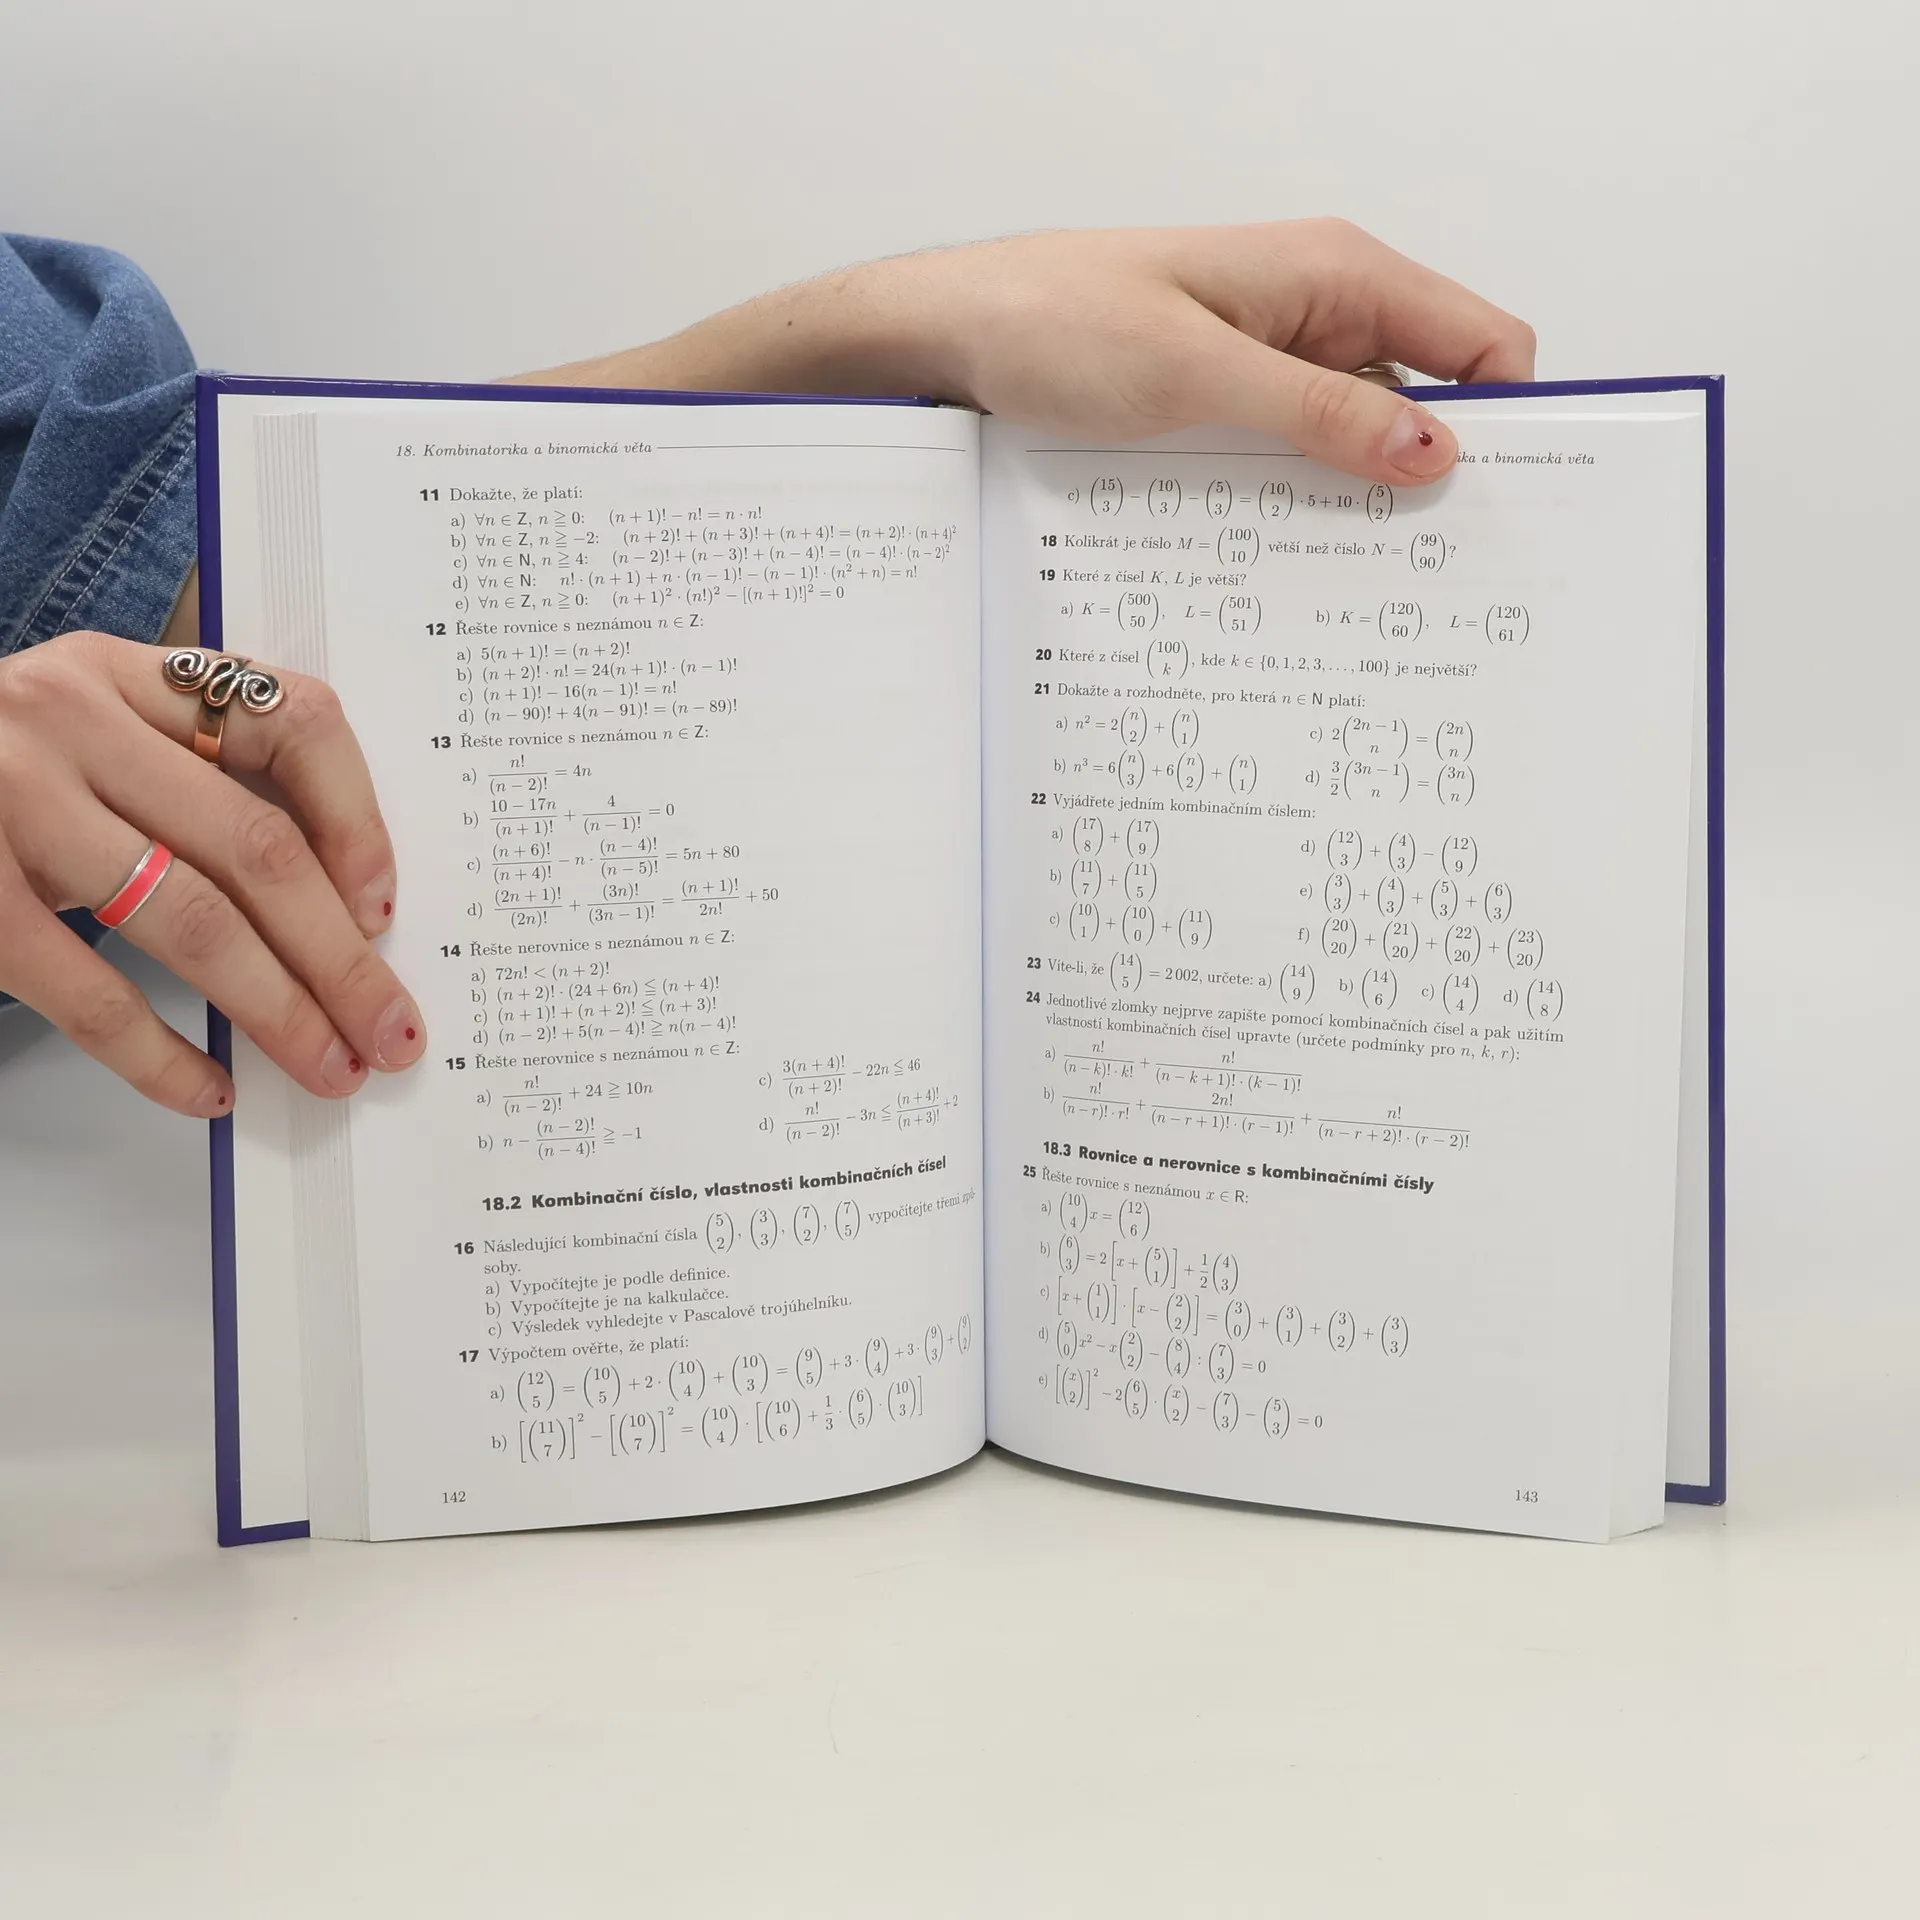 18. Kombinatorika a binomická věta
11 Dokažte, že platí:
a) ∀n ∈ Z, n ≧ 0: (n + 1)! − n! = n · n!
b) ∀n ∈ Z, n ≧ −2: (n + 2)! + (n + 3)! + (n + 4)! = (n + 2)! · (n + 4)²
c) ∀n ∈ N, n ≧ 4: (n − 2)! + (n − 3)! + (n − 4)! = (n − 4)! · (n − 2)²
d) ∀n ∈ N: n! · (n + 1) + n · (n − 1)! − (n − 1)! · (n² + n) = n!
e) ∀n ∈ Z, n ≧ 0: (n + 1)² · (n!)² − [(n + 1)!]² = 0
12 Řešte rovnice s neznámou n ∈ Z:
a) 5(n + 1)! = (n + 2)!
b) (n + 2)! · n! = 24(n + 1)! · (n − 1)!
c) (n + 1)! − 16(n − 1)! = n!
d) (n − 90)! + 4(n − 91)! = (n − 89)!
13 Řešte rovnice s neznámou n ∈ Z:
a) n!/(n − 2)! = 4n
b) (10 − 17n)/(n + 1)! + 4/(n − 1)! = 0
c) (n + 6)!/(n + 4)! − n · (n − 4)!/(n − 5)! = 5n + 80
d) (2n + 1)!/(2n)! + (3n)!/(3n − 1)! = (n + 1)!/2n! + 50
14 Řešte nerovnice s neznámou n ∈ Z:
a) 72n! < (n + 2)!
b) (n + 2)! · (24 + 6n) ≦ (n + 4)!
c) (n + 1)! + (n + 2)! ≦ (n + 3)!
d) (n − 2)! + 5(n − 4)! ≧ n(n − 4)!
15 Řešte nerovnice s neznámou n ∈ Z:
a) n!/(n − 2)! + 24 ≧ 10n c) 3(n + 4)!/(n + 2)! − 22n ≦ 46
b) n − (n − 2)!/(n − 4)! ≧ −1 d) n!/(n − 2)! − 3n ≦ (n + 4)!/(n + 3)! + 2
18.2 Kombinační číslo, vlastnosti kombinačních čísel
16 Následující kombinační čísla (5 2), (3 3), (7 2), (7 5) vypočítejte třemi způ-
soby.
a) Vypočítejte je podle definice.
b) Vypočítejte je na kalkulačce.
c) Výsledek vyhledejte v Pascalově trojúhelníku.
17 Výpočtem ověřte, že platí:
a) (12 5) = (10 5) + 2 · (10 4) + (10 3) = (9 5) + 3 · (9 4) + 3 · (9 3) + (9 2)
b) [(11 7)]² − [(10 7)]² = (10 4) · [(10 6) + 1/3 · (6 5) · (10 3)]
142
ika a binomická věta
c) (15 3) − (10 3) − (5 3) = (10 2) · 5 + 10 · (5 2)
18 Kolikrát je číslo M = (100 10) větší než číslo N = (99 90)?
19 Které z čísel K, L je větší?
a) K = (500 50), L = (501 51) b) K = (120 60), L = (120 61)
20 Které z čísel (100 k), kde k ∈ {0, 1, 2, 3, . . . , 100} je největší?
21 Dokažte a rozhodněte, pro která n ∈ N platí:
a) n² = 2(n 2) + (n 1) c) 2(2n − 1 n) = (2n n)
b) n³ = 6(n 3) + 6(n 2) + (n 1) d) 3/2 (3n − 1 n) = (3n n)
22 Vyjádřete jedním kombinačním číslem:
a) (17 8) + (17 9) d) (12 3) + (4 3) − (12 9)
b) (11 7) + (11 5) e) (3 3) + (4 3) + (5 3) + (6 3)
c) (10 1) + (10 0) + (11 9) f) (20 20) + (21 20) + (22 20) + (23 20)
23 Víte-li, že (14 5) = 2 002, určete: a) (14 9) b) (14 6) c) (14 4) d) (14 8)
24 Jednotlivé zlomky nejprve zapište pomocí kombinačních čísel a pak užitím
vlastností kombinačních čísel upravte (určete podmínky pro n, k, r):
a) n!/(n − k)! · k! + n!/(n − k + 1)! · (k − 1)!
b) n!/(n − r)! · r! + 2n!/(n − r + 1)! · (r − 1)! + n!/(n − r + 2)! · (r − 2)!
18.3 Rovnice a nerovnice s kombinačními čísly
25 Řešte rovnice s neznámou x ∈ R:
a) (10 4)x = (12 6)
b) (6 3) = 2 [x + (5 1)] + 1/2 (4 3)
c) [x + (1 1)] · [x − (2 2)] = (3 0) + (3 1) + (3 2) + (3 3)
d) (5 0)x² − x(2 2) − (8 4) : (7 3) = 0
e) [(x 2)]² − 2(6 5) · (x 2) − (7 3) − (5 3) = 0
143